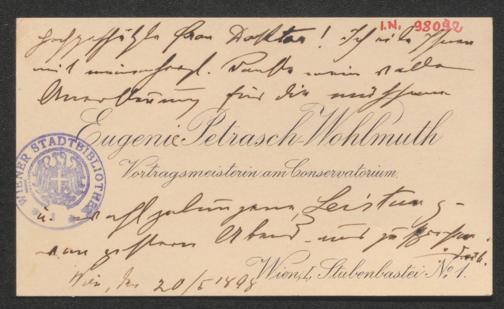 I.N. 98092
Hochgeschätzte Frau Doktor! Ich eile Ihnen
mit meinem herzl. Danke meine volle
Anerkennung für die mühsame
Eugenie Petrasch-Wohlmuth
Vortragsmeisterin am Conservatorium.
WIENER STADTBIBLIOTHEK
u. wohlgelungene Leistung
von gestern Abend und
Wien, 20/5 1898
Wien, I., Stubenbastei No. 1.